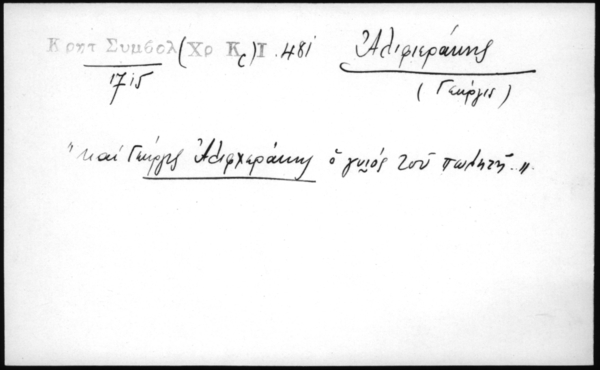 Κρητ Συμβολ (Χρ Κς) Ι. 481 Ἀλιφιεράκης
1715 (Γεώργις)
"καί Γεώργης Ἀλιφχεράκης ὁ γυιός τοῦ πωλητῆ.."